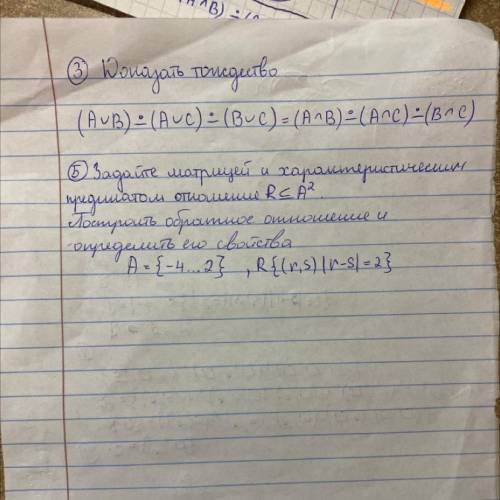 ③ Доказать тождество
(A∪B) ∸ (A∪C) ∸ (B∪C) = (A∩B) ∸ (A∩C) ∸ (B∩C)
⑤ Задайте матрицей и характеристическим
предикатом отношение R⊆A².
Построить обратное отношение и
определить его свойства
A = {-4...2} , R{(r,s) | r-s| = 2}